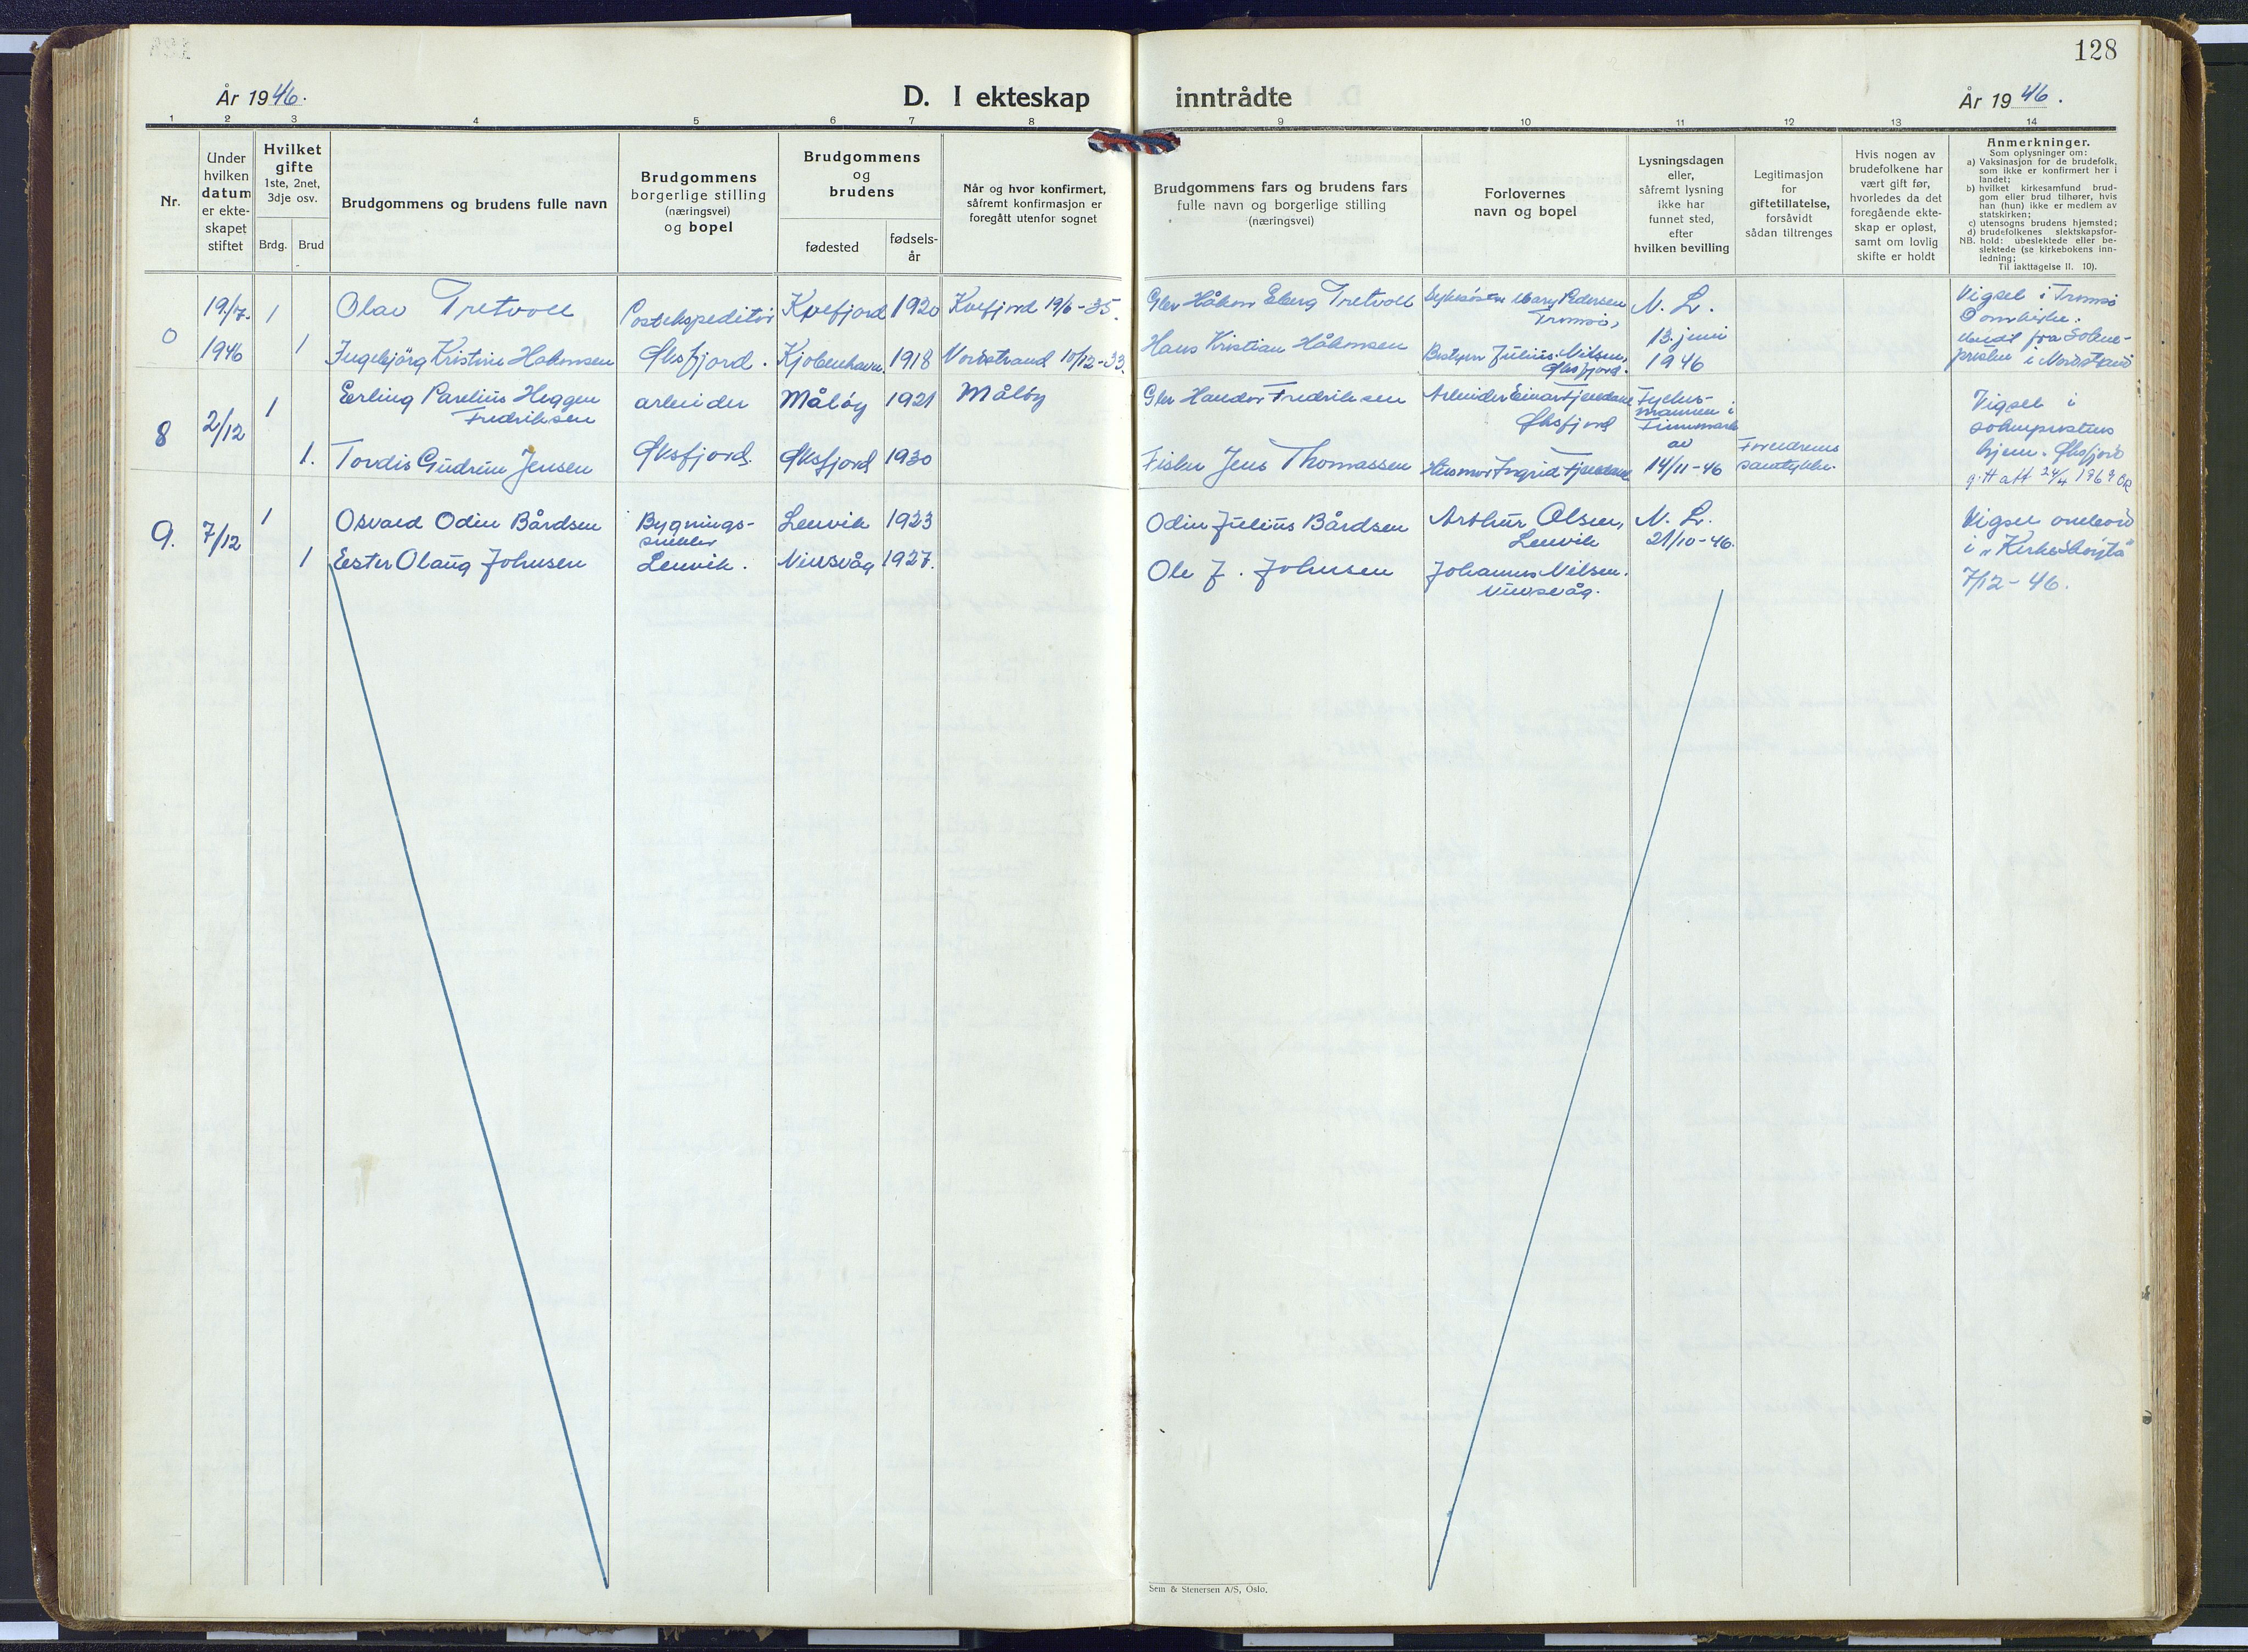 128
År 1946.
D. I ekteskap inntrådte
År 1946.
1 2 3 4 5 6 7 8 9 10 11 12 13 14
Nr.
Under
hvilken
datum
er ekte-
skapet
stiftet
Hvilket
gifte
1ste, 2net,
3dje osv.
Brdg. Brud
Brudgommens og brudens fulle navn
Brudgommens
borgerlige stilling
(næringsvei)
og bopel
Brudgommens
og
brudens
fødested
fødsels-
år
Når og hvor konfirmert,
såfremt konfirmasjon er
foregått utenfor sognet
Brudgommens fars og brudens fars
fulle navn og borgerlige stilling
(næringsvei)
Forlovernes
navn og bopel
Lysningsdagen
eller,
såfremt lysning
ikke har
funnet sted,
efter
hvilken bevilling
Legitimasjon
for
giftetillatelse,
forsåvidt
sådan tiltrenges
Hvis nogen av
brudefolkene har
vært gift før,
hvorledes da det
foregående ekte-
skap er opløst,
samt om lovlig
skifte er holdt
Anmerkninger.
Som oplysninger om:
a) Vaksinasjon for de brudefolk,
som ikke er konfirmert her i
landet;
b) hvilket kirkesamfund brud-
gom eller brud tilhører, hvis
han (hun) ikke er medlem av
statskirken;
c) utensogns brudens hjemsted;
d) brudefolkenes slektskapsfor-
NB. hold: ubeslektede eller be-
slektede (se kirkebokens inn-
ledning;
Til iakttagelse II. 10).
0 19/7. 1 Olav Tretvoll Postekspeditør Kvefjord 1920 Kvefjord 19/6-35. Gbr Håkon Eberg Tretvoll Sykesøster Mary Pedersen
Tromsø,
N. L.
Vigsel i Tromsø
Domkirke.
1946 1 Ingebjörg Kristine Hakonsen Øksfjord. Kjøbenhavn. 1918 Nordstrand 10/12-33. Hans Kristian Håkonsen Bestyrer Julius Nilsen,
Øksfjord.
13. juni
1946
fra Sokne-
presten i Nordstrand
8 2/12 1 Erling Parelius Heggen
Fredriksen
arbeider Måløy 1921 Måløy Gbr Handor Fredriksen Arbeider Einar Fjendane
Øksfjord
Fylkes-
mannen i
Finnmark
av
14/11-46
1. Tordis Gudrun Jensen Øksfjord. Øksfjord 1930 Fisker Jens Thomassen Husmor Ingrid Fjendane
Foreldrenes
samtykke.
Vigsel i
sokneprestens
hjem. Øksfjord
24/4 1969
9. 7/12 1 Osvald Odin Bårdsen Bygnings-
snekker
Lervik 1923 Odin Julius Bårdsen Arthur Olsen,
Lervik
N. L.
21/10-46.
1 Ester Olaug Johnsen Lervik. Nuvsvåg 1927. Ole J. Johnsen Johannes Nilsen.
Nuvsvåg.
Vigsel ombord
i "Kirkeskøyta"
7/12-46.
Sem & Stenersen A/S, Oslo.